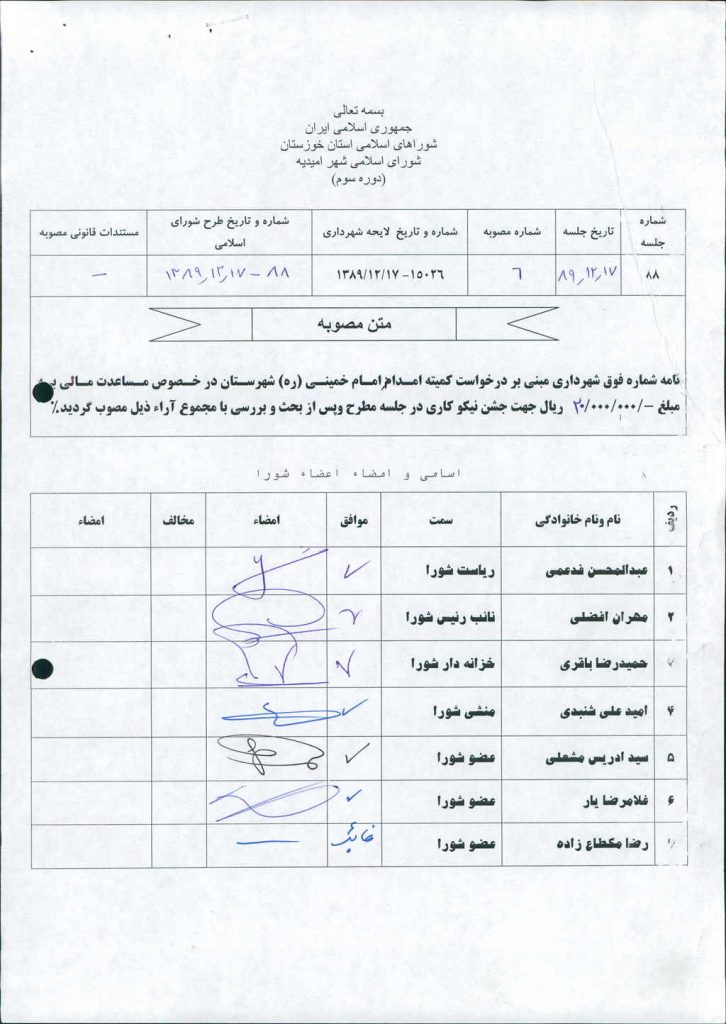 بسمه تعالی
جمهوری اسلامی ایران
شوراهای اسلامی استان خوزستان
شورای اسلامی شهر امیدیه
(دوره سوم)
شماره جلسه	تاریخ جلسه	شماره مصوبه	شماره و تاریخ لایحه شهرداری	شماره و تاریخ طرح شورای اسلامی	مستندات قانونی مصوبه
۸۸	۸۹٫۱۲٫۱۷	۶	۱۵۰۲۶- ۱۳۸۹/۱۲/۱۷	۸۸ – ۱۳۸۹٫۱۲٫۱۷	—
متن مصوبه
نامه شماره فوق شهرداری مبنی بر درخواست کمیته امداد امام خمینی (ره) شهرستان در خصوص مساعدت مالی به
مبلغ -/۲۰/۰۰۰/۰۰۰ ریال جهت جشن نیکو کاری در جلسه مطرح وپس از بحث و بررسی با مجموع آراء ذیل مصوب گردید.٪
اسامی و امضاء اعضاء شورا
ردیف	نام ونام خانوادگی	سمت	موافق	امضاء	مخالف	امضاء
۱	عبدالمحسن فدعمی	ریاست شورا	✓
۲	مهران افضلی	نائب رئیس شورا
۳	حمیدرضا باقری	خزانه دار شورا	✓
۴	امید علی شنبدی	منشی شورا	✓
۵	سید ادریس مشعلی	عضو شورا	✓
۶	غلامرضا یار	عضو شورا	✓
۷	رضا مکطاع زاده	عضو شورا	غائب	—